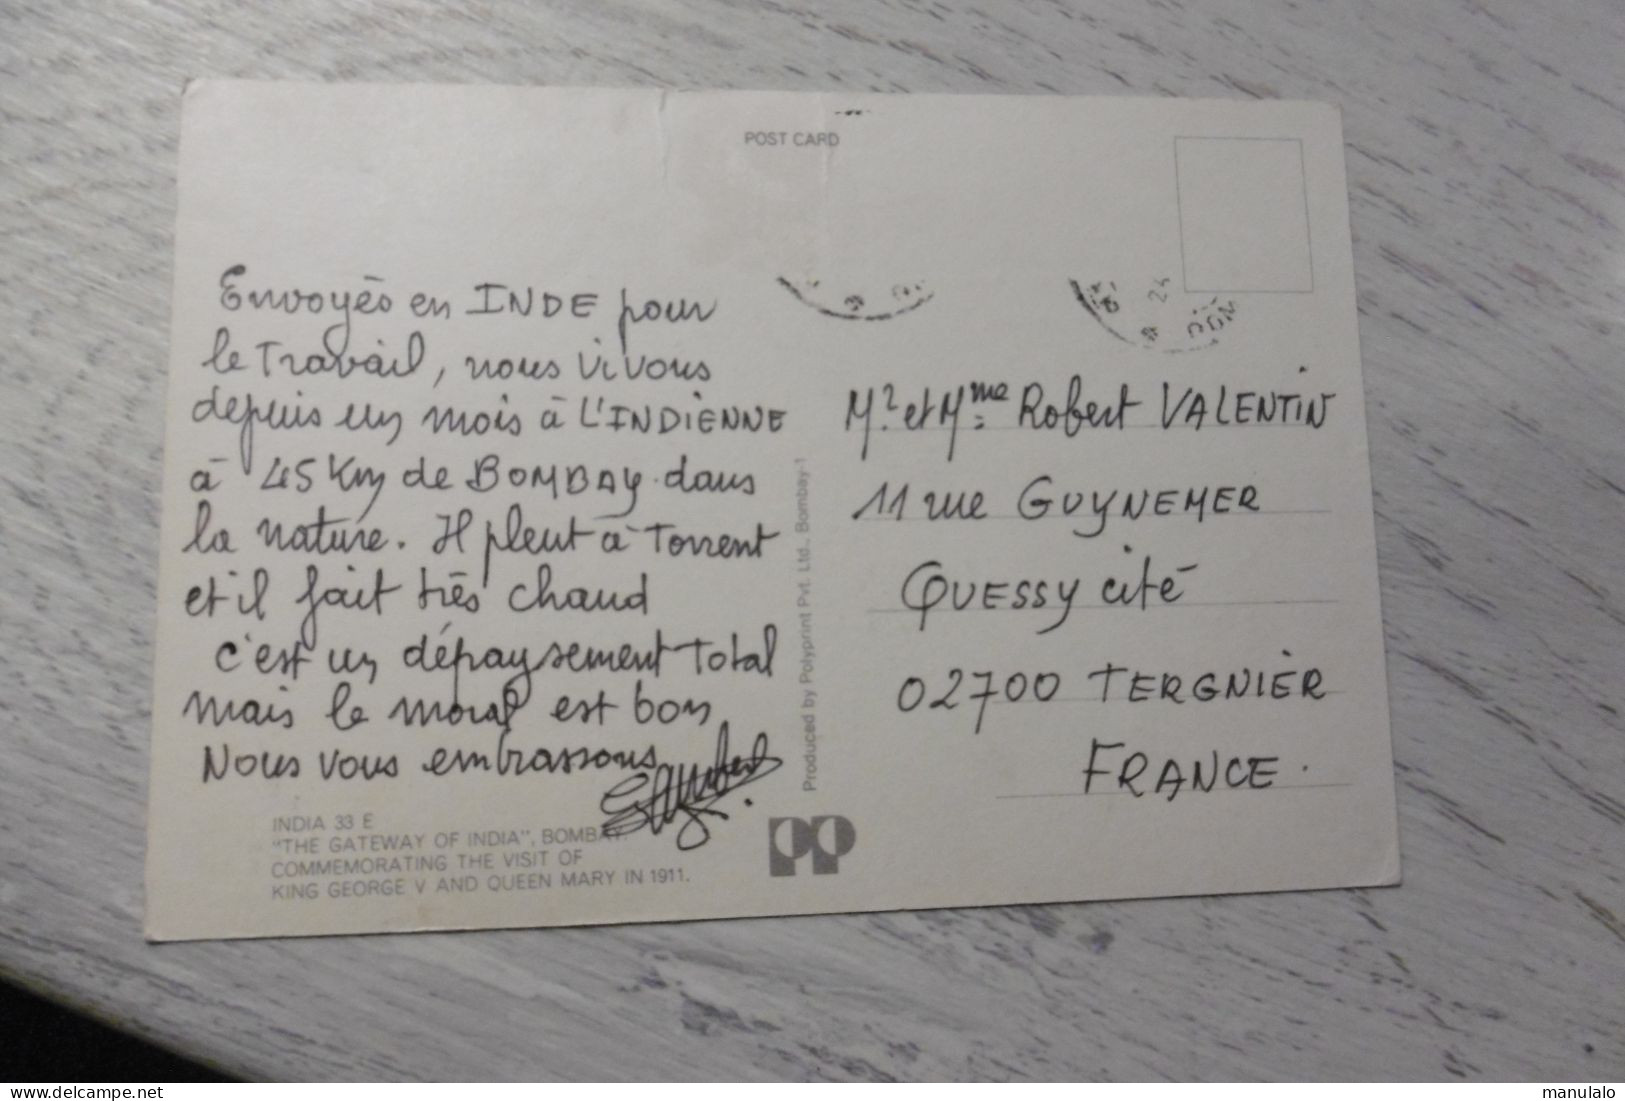 POST CARD
Envoyés en INDE pour
le Travail, nous vivons
depuis un mois à L'INDIENNE
à 45 Km de BOMBAY dans
la nature. Il pleut à Torrent
et il fait très chaud
c'est un dépaysement Total
mais le moral est bon
Nous vous embrassons
INDIA 33 E
"THE GATEWAY OF INDIA", BOMBAY.
COMMEMORATING THE VISIT OF
KING GEORGE V AND QUEEN MARY IN 1911.
Produced by Polyprint Pvt. Ltd., Bombay-1
PP
24
Mr et Mme Robert VALENTIN
11 rue GUYNEMER
QUESSY cité
02700 TERGNIER
FRANCE.
delcampe.net
manulalo